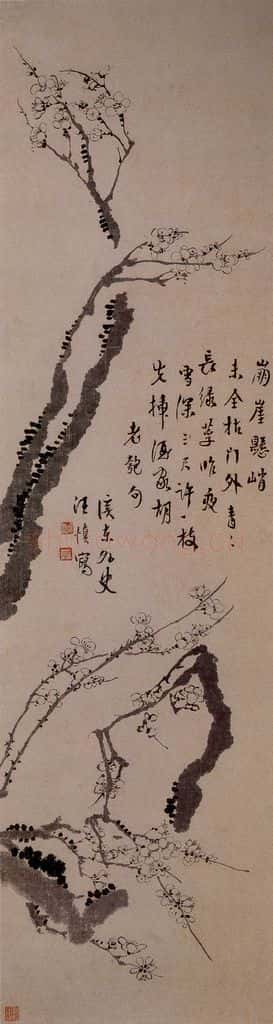 崩崖懸峭
未全枯門外青〻
長綠昨夜
雪深三尺許一枝
先插酒家胡
老匏句
溪東外史
汪慎寫